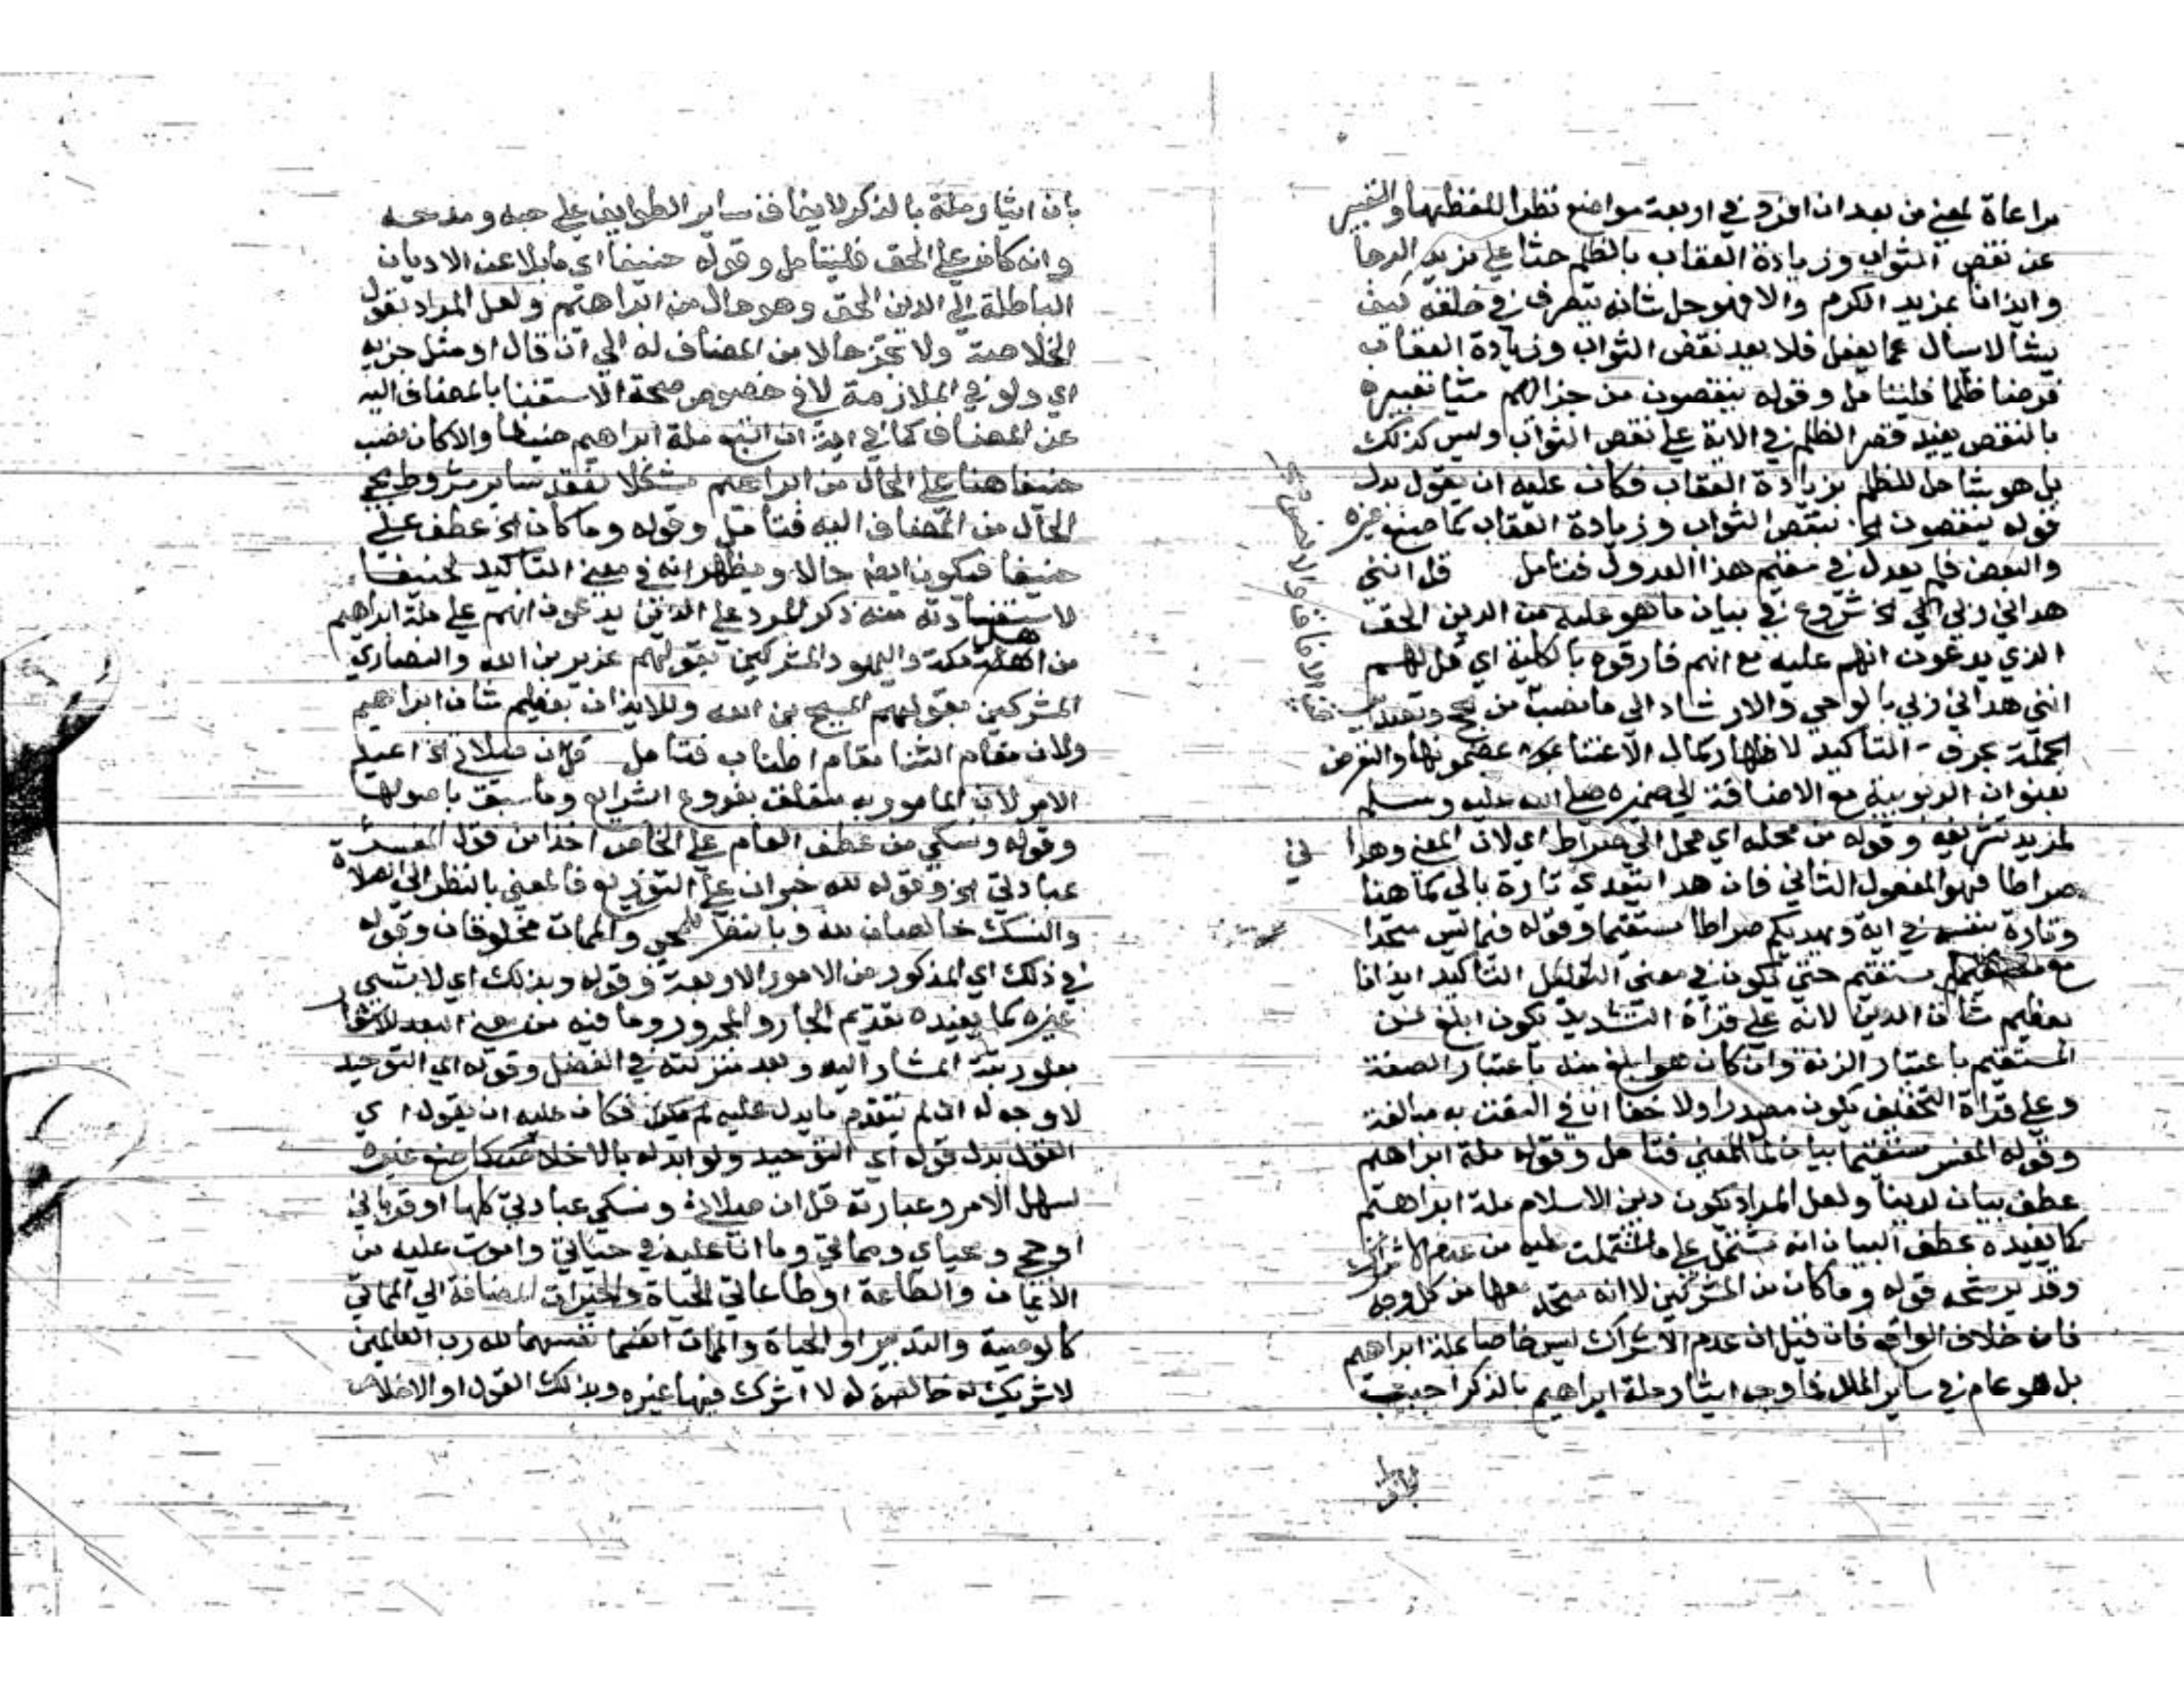 مراعاة لمعني من بعد ان افرد في اربعة مواضع نظرا للفظها والتعبير
عن نقص الثواب وزيادة العقاب بالظلم حثا علي مزيد الرجا
وايذانا بمزيد الكرم والا فهو جل شانه يتصرف في خلقه كيف
يشا لا يسال عما يفعل فلا يعد نقص الثواب وزيادة العقاب
فرضا ظلما فليتامل وقوله ينقصون من جزائهم شيا تعبيره
بالنقص يفيد قصر الظلم في الاية علي نقص الثواب وليس كذلك
بل هو شامل للظلم بزيادة العقاب فكان عليه ان يقول بدل
قوله ينقصون الخ بنقص الثواب وزيادة العقاب كما صنع غيره
والبعض فلم يعدل في هذا العدول فتامل قل انني
هداني ربي الي الخ شروع في بيان ما هو عليه من الدين الحق
الذي يدعون انهم عليه مع انهم فارقوه بالكلية اي قل لهم
انني هداني ربي بالوحي والارشاد الي ما نصب من حجج وتصدير
الجملة بحرف التاكيد لاظهار كمال الاعتنا بمضمونها والتعرض
بعنوان الربوبية مع الاضافة الي ضميره صلي الله عليه وسلم
لمزيد تشريفه وقوله من محله اي محل الي صراط اي لان المعني وهدا
ني
صراطا فهو المفعول الثاني فان هدا يتعدي تارة بالي كما هنا
وتارة بنفسه في اية ويهديكم صراطا مستقيما وقوله قيما ليس متحدا
مع مستقيم حتي يكون في معني التعليل التاكيد ايذانا
بعظيم شان الدين لانه علي قراة التشديد يكون ابلغ من
المستقيم باعتبار الزنة وان كان هو ابلغ منه باعتبار الصفة
وعلي قراة التخفيف يكون مصدرا ولا خفا ان في النعت به مبالغة
وقوله المفسر مستقيما بيان لما المعني فتامل وقوله ملة ابراهيم
عطف بيان لدينا ولعل المراد بكون دين الاسلام ملة ابراهيم
كما يفيده عطف البيان انه مشتمل علي ما اشتملت عليه من عدم الاشراك
وقد يرشحه قوله وما كان من المشركين لا انه متحد معها من كل وجه
فان خلاف الواقع فان قيل ان عدم الاشراك ليس خاصا بملة ابراهيم
بل هو عام في ساير الملل فما وجه ايثار ملة ابراهيم بالذكر اجيب
بان
بان ايثار ملة بالذكر لاتفاق ساير الطوايف علي حبه ومدحه
وانه كان علي الحق فليتامل وقوله حنيفا اي مايلا عن الاديان
الباطلة الي الدين الحق وهو حال من ابراهيم ولعل المراد بقول
الخلاصة ولا تجز حالا من المضاف له الي ان قال او مثل جزيه
اي ولو في الملازمة لا في خصوص صحة الاستغنا بالمضاف اليه
عن المضاف كما في اية ان اتبع ملة ابراهيم حنيفا والا كان نصب
حنيفا هنا علي الحال من ابراهيم مشكلا لفقد ساير شروط مجي
الحال من المضاف اليه فتامل وقوله وما كان الخ عطف علي
حنيفا فيكون ايضا حالا ويظهر انه في معني التاكيد لحنيفا
لاستفادته منه ذكر للرد علي الذين يدعون انهم علي ملة ابراهيم
من اهل مكة واليهود المشركين بقولهم عزير بن الله والنصاري
المشركين بقولهم المسيح بن الله وللايذان بعظيم شان ابراهيم
ولان مقام الثنا مقام اطناب فتامل قل ان صلاتي الخ اعيد
الامر لان المامور به متعلق بفروع الشرايع وما سبق باصولها
وقوله ونسكي من عطف العام علي الخاص اخذا من قول المفسر
عبادتي الخ وقوله لله خبر ان علي التوزيع فالمعني بالنظر الي الصلاة
والنسك خالصان لله وبالنظر للمحي والممات مخلوقان وقوله
في ذلك اي المذكور من الامور الاربعة وقوله وبذلك اي لا بشي
غيره كما يفيده تقديم الجار والمجرور وما فيه من معني البعد للاشعار
بعلو رتبة المشار اليه وبعد منزلته في الفضل وقوله اي التوحيد
لا وجه له اذ لم يتقدم ما يدل عليه فكان عليه ان يقول اي
القول بدل قوله اي التوحيد ولو ابدله بالاخلاص كما صنع غيره
لسهل الامر وعبارته قل ان صلاتي ونسكي عبادتي كلها او قرباني
او حجي ومحياي ومماتي وما انا عليه في حياتي واموت عليه من
الايمان والطاعة او طاعات الحياة والخيرات المضافة الي الممات
كالوصية والتدبير او الحياة والممات انفسهما لله رب العالمين
لا شريك له خالصة له لا اشرك فيها غيره وبذلك القول او الاخلاص